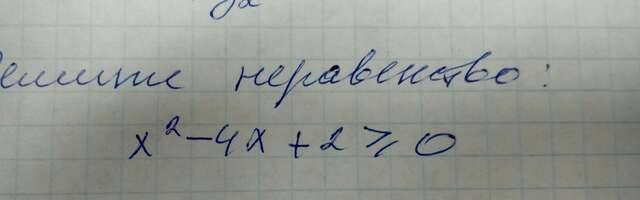 Решите неравенство:
x² - 4x + 2 ≥ 0